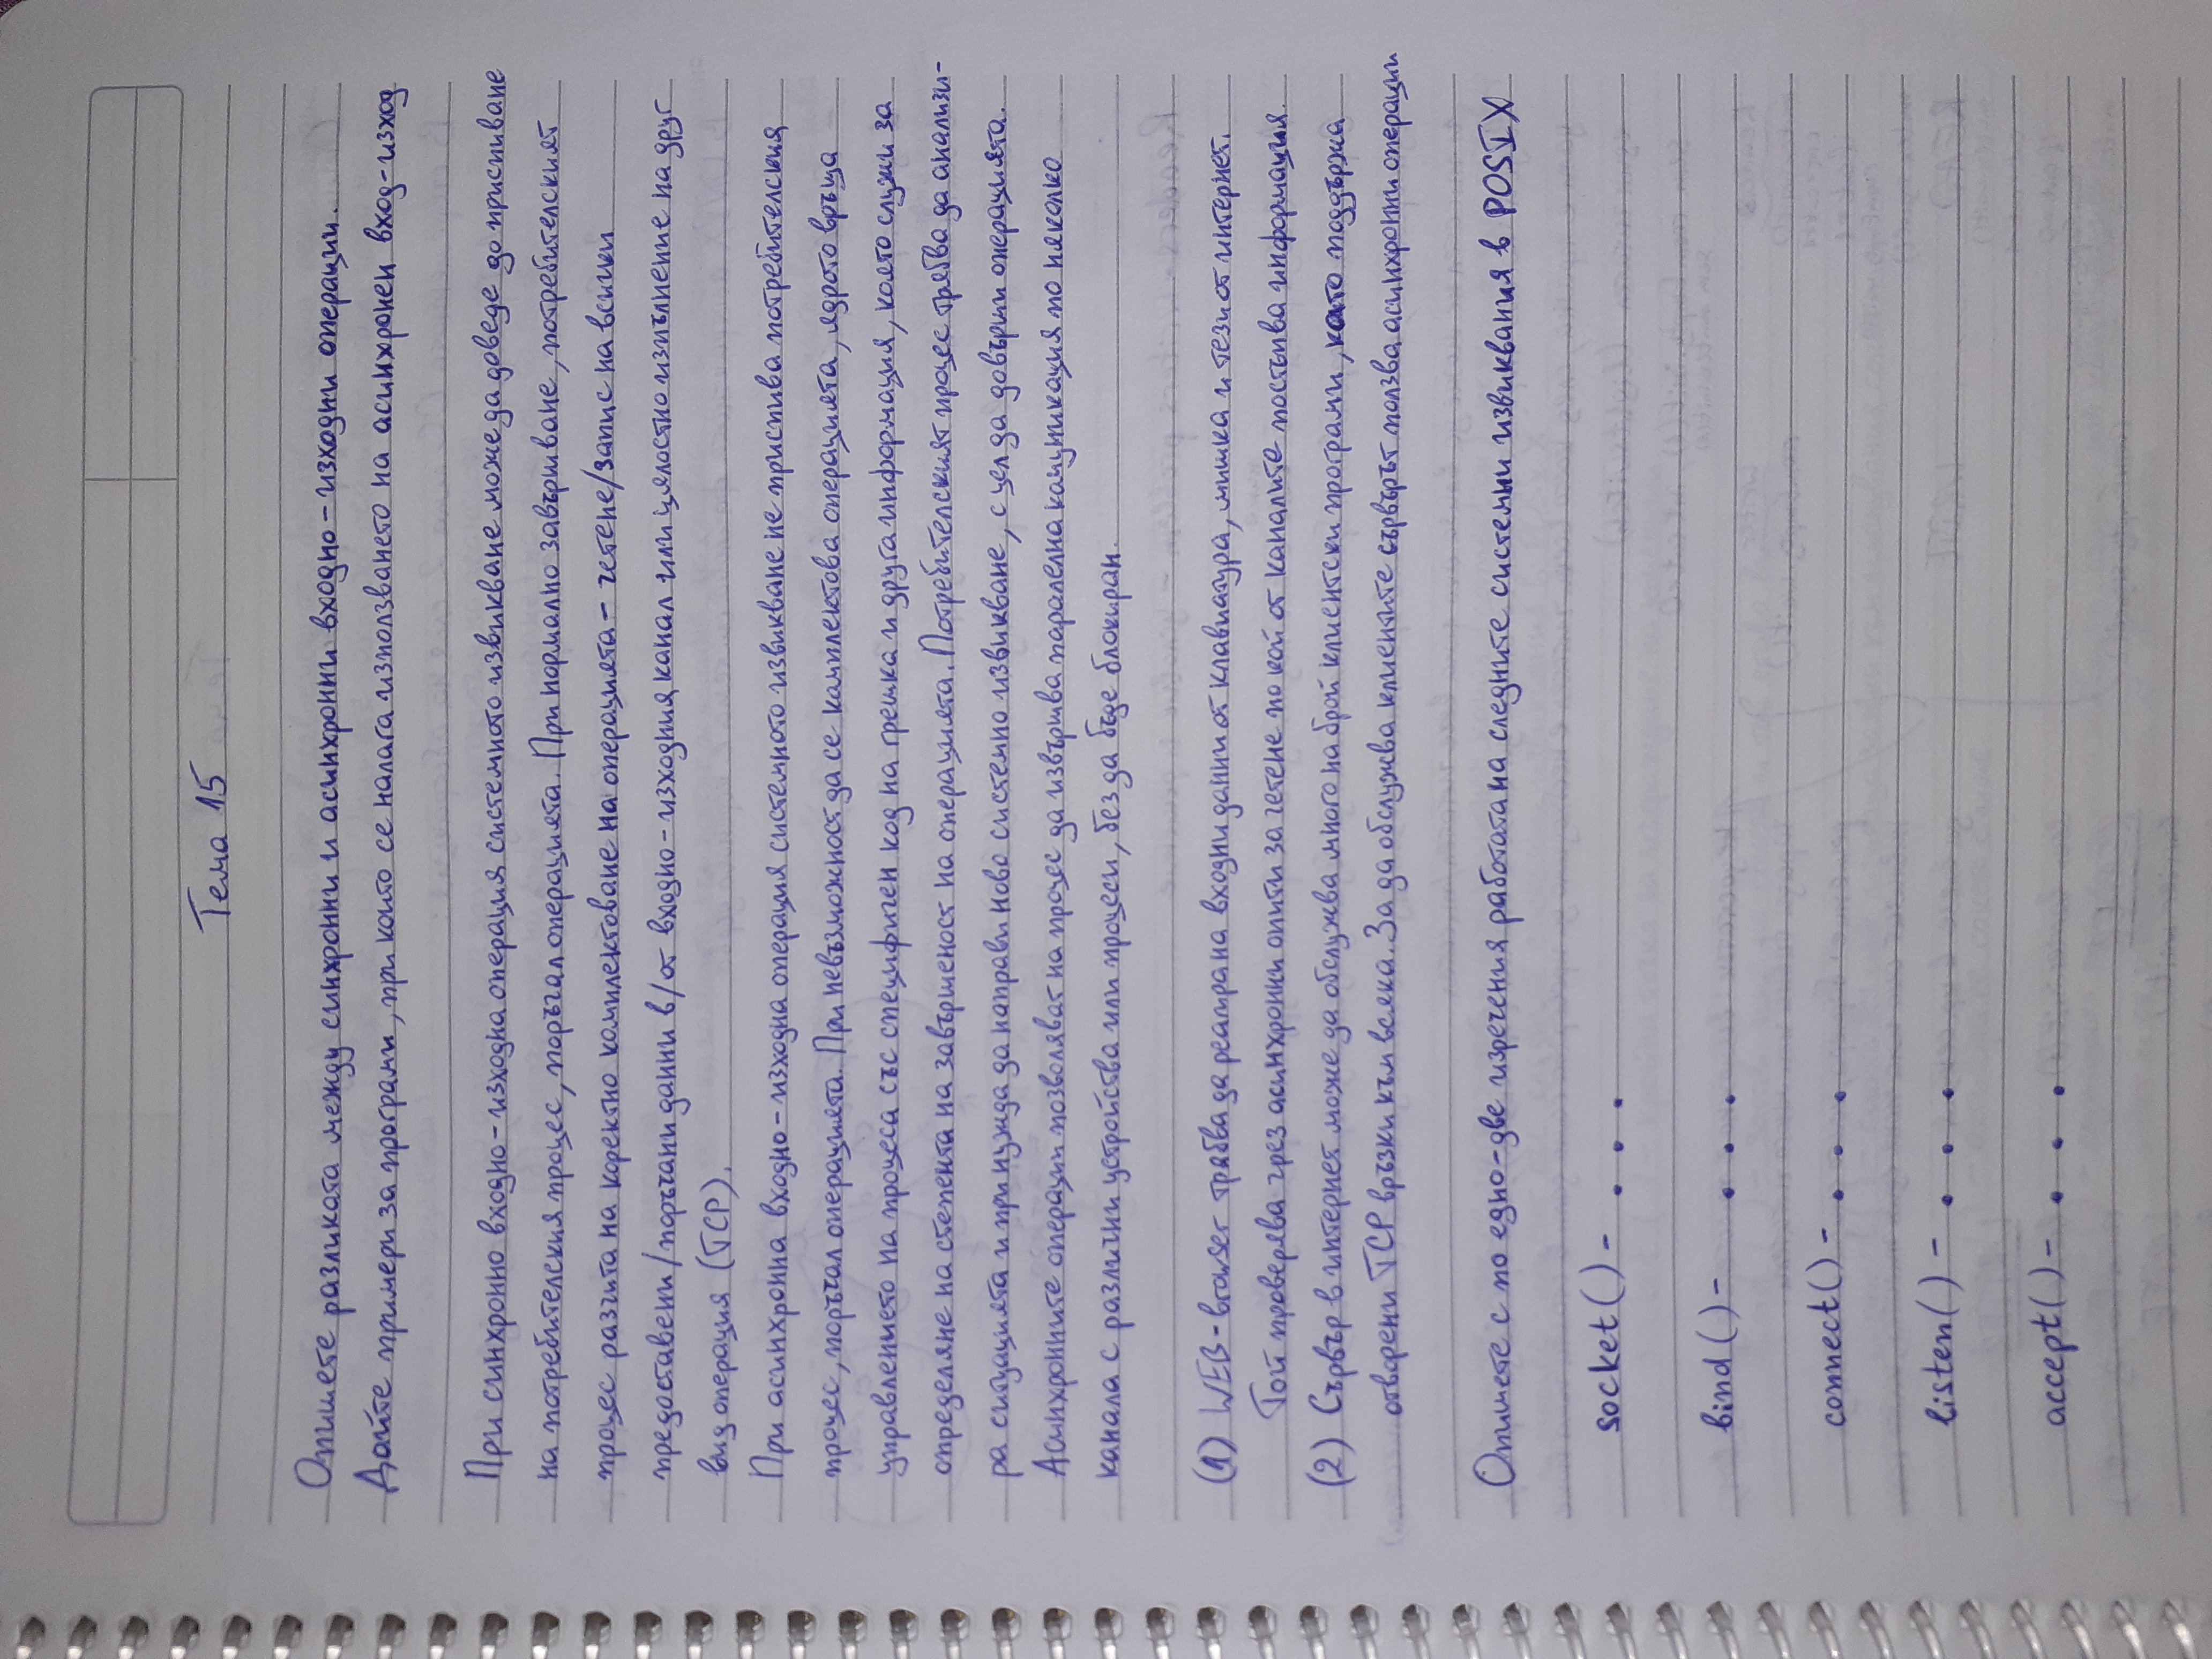 Тема 15
Опишете разликата между синхронни и асинхронни входно-изходни операции.
Дайте примери за програми, при които се налага използването на асинхронен вход-изход
При синхронно входно-изходна операция системното извикване може да доведе до приспиване
на потребителския процес, поръчал операцията. При нормално завършване, потребителският
процес разчита на коректно комплектоване на операцията - четене/запис на всички
предоставени/поръчани данни в/от входно-изходния канал или цялостно изпълнение на друг
вид операция (TCP).
При асинхронна входно-изходна операция системното извикване не приспива потребителския
процес, поръчал операцията. При невъзможност да се комплектова операцията, ядрото връща
управлението на процеса със специфичен код на грешка и друга информация, която служи за
определяне на степента на завършеност на операцията. Потребителският процес трябва да анализи-
ра ситуацията и при нужда да направи ново системно извикване, с цел да довърши операцията.
Асинхронните операции позволяват на процес да извършва паралелна комуникация по няколко
канала с различни устройства или процеси, без да бъде блокиран.
(1) WEB-browser трябва да реагира на входни данни от клавиатура, мишка и тези от интернет.
Той проверява чрез асинхронни опити за четене по кой от каналите постъпва информация.
(2) Сървър в интернет може да обслужва много на брой клиентски програми, като поддържа
отворени TCP връзки към всяка. За да обслужва клиентите сървърът ползва асинхронни операции
Опишете с по едно-две изречения работата на следните системни извиквания в POSIX
socket() - . . .
bind() - . . .
connect() - . . .
listen() - . . .
accept() - . . .